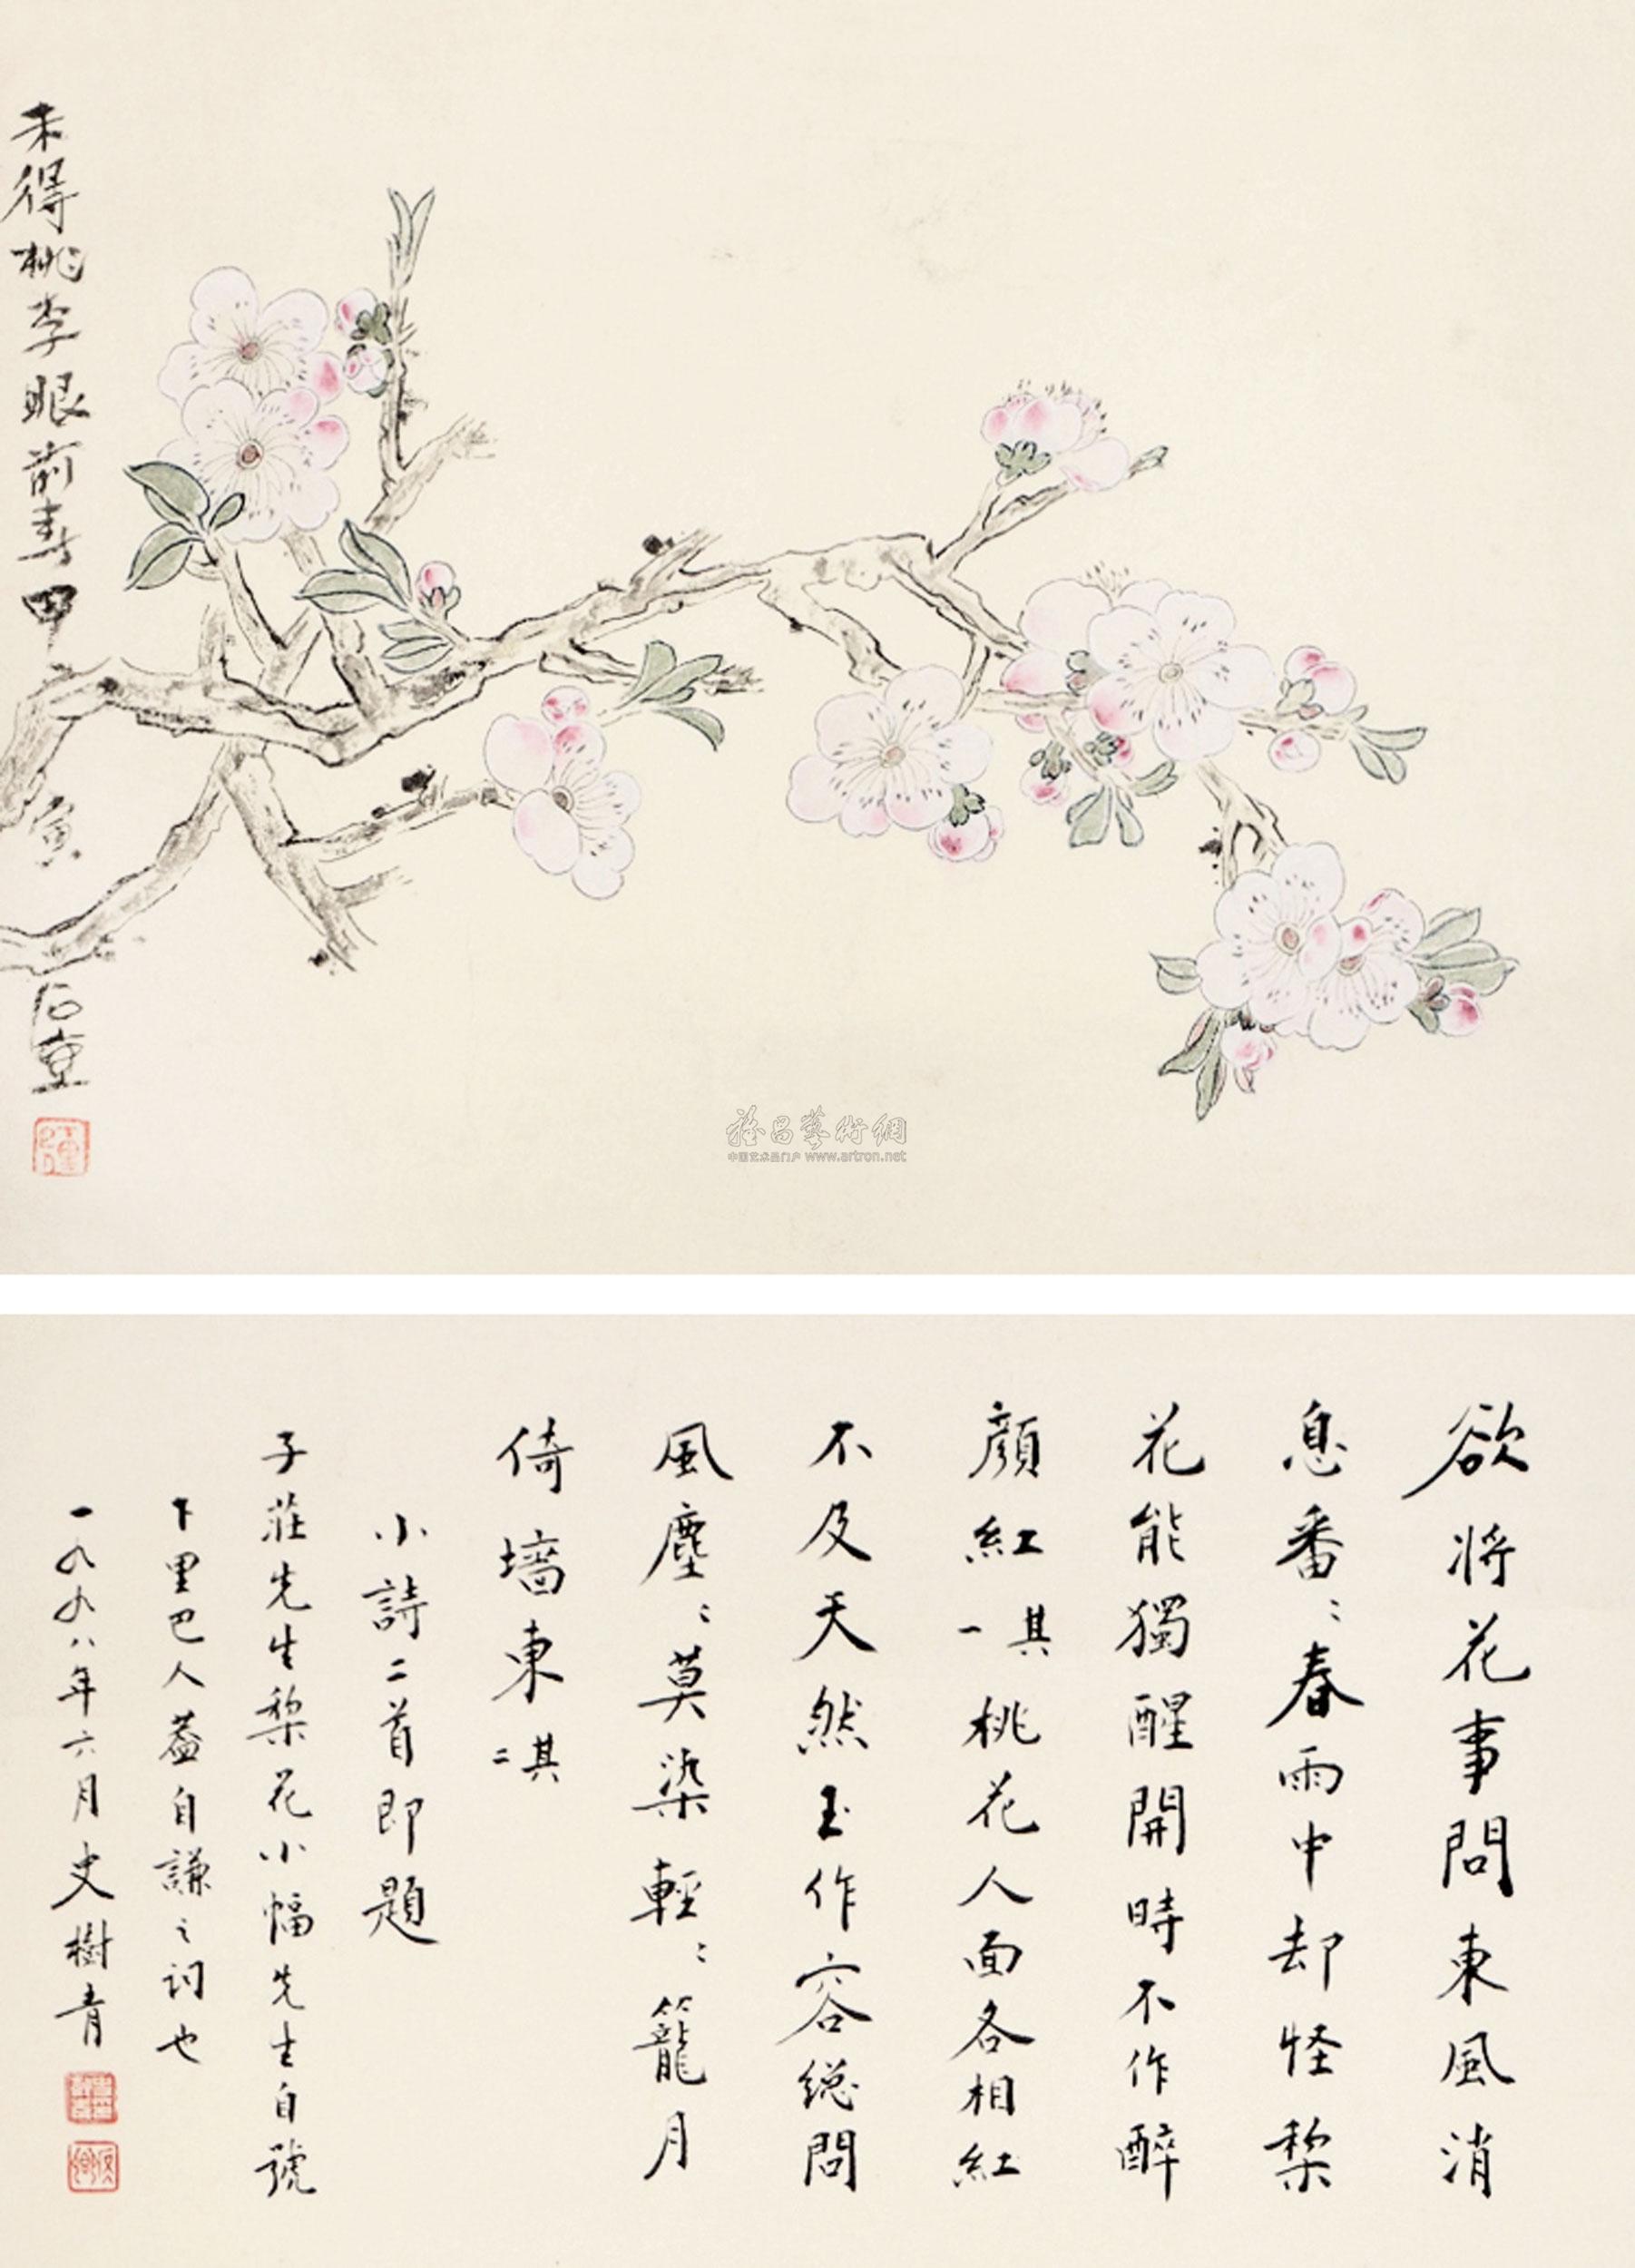 未得桃李眼前春甲寅石壶
雅昌藝術網
中国艺术品门户 www.artron.net
欲將花事問東風消
息番〻春雨中却怪梨
花能獨醒開時不作醉
顏紅其一桃花人面各相紅
不及天然玉作容総問
風塵〻莫染輕〻籠月
倚墻東其二
小詩二首即題
子莊先生梨花小幅先生自號
下里巴人蓋自謙之詞也
一九九八年六月史樹青